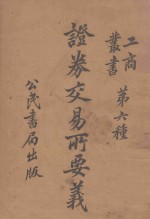 工商叢書 第六種
證券交易所要義
公民書局出版